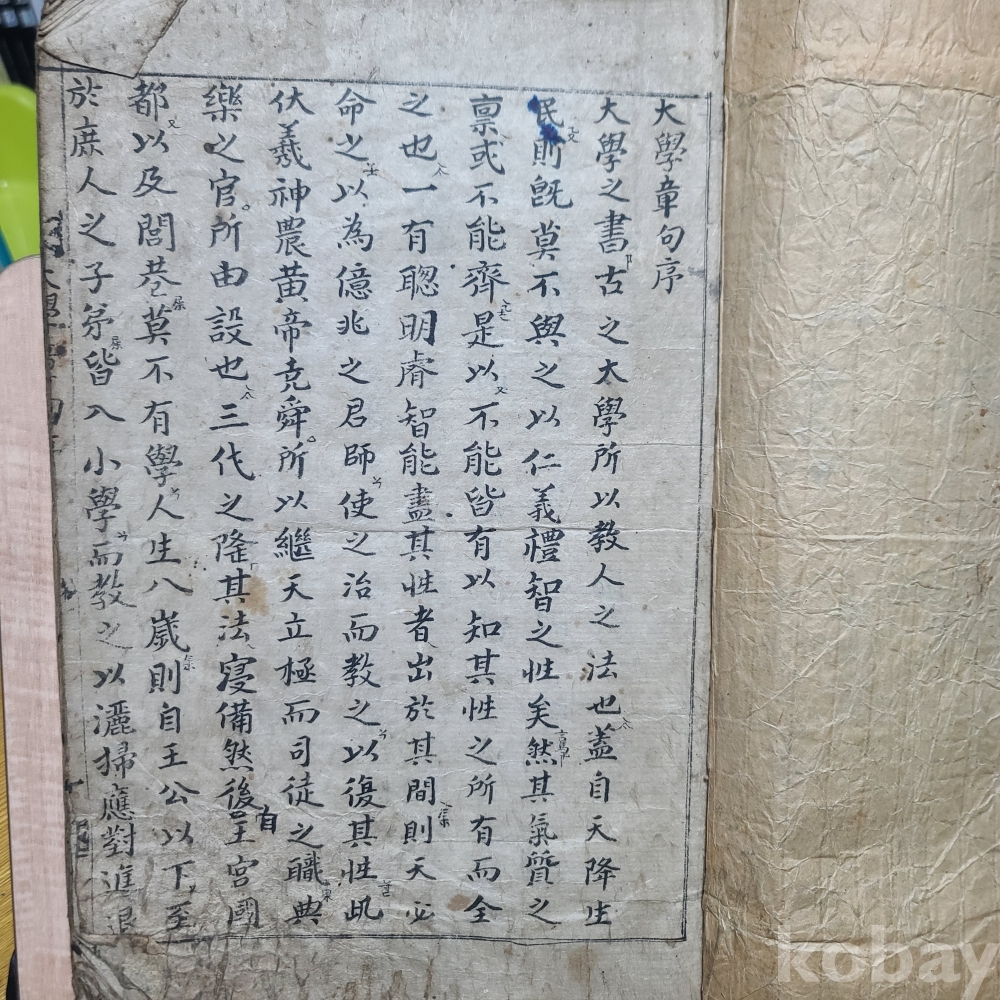 大學章句序
大學之書古之大學所以教人之法也盖自天降生
民則旣莫不與之以仁義禮智之性矣然其氣質之
禀或不能齊是以不能皆有以知其性之所有而全
之也一有聦明睿智能盡其性者出於其間則天必
命之以為億兆之君師使之治而教之以復其性此
伏羲神農黄帝堯舜所以繼天立極而司徒之職典
樂之官所由設也三代之隆其法寖備然後王宮國
自
都以及閭巷莫不有學人生八歲則自王公以下至
於庶人之子弟皆入小學而教之以灑掃應對進退
kobay